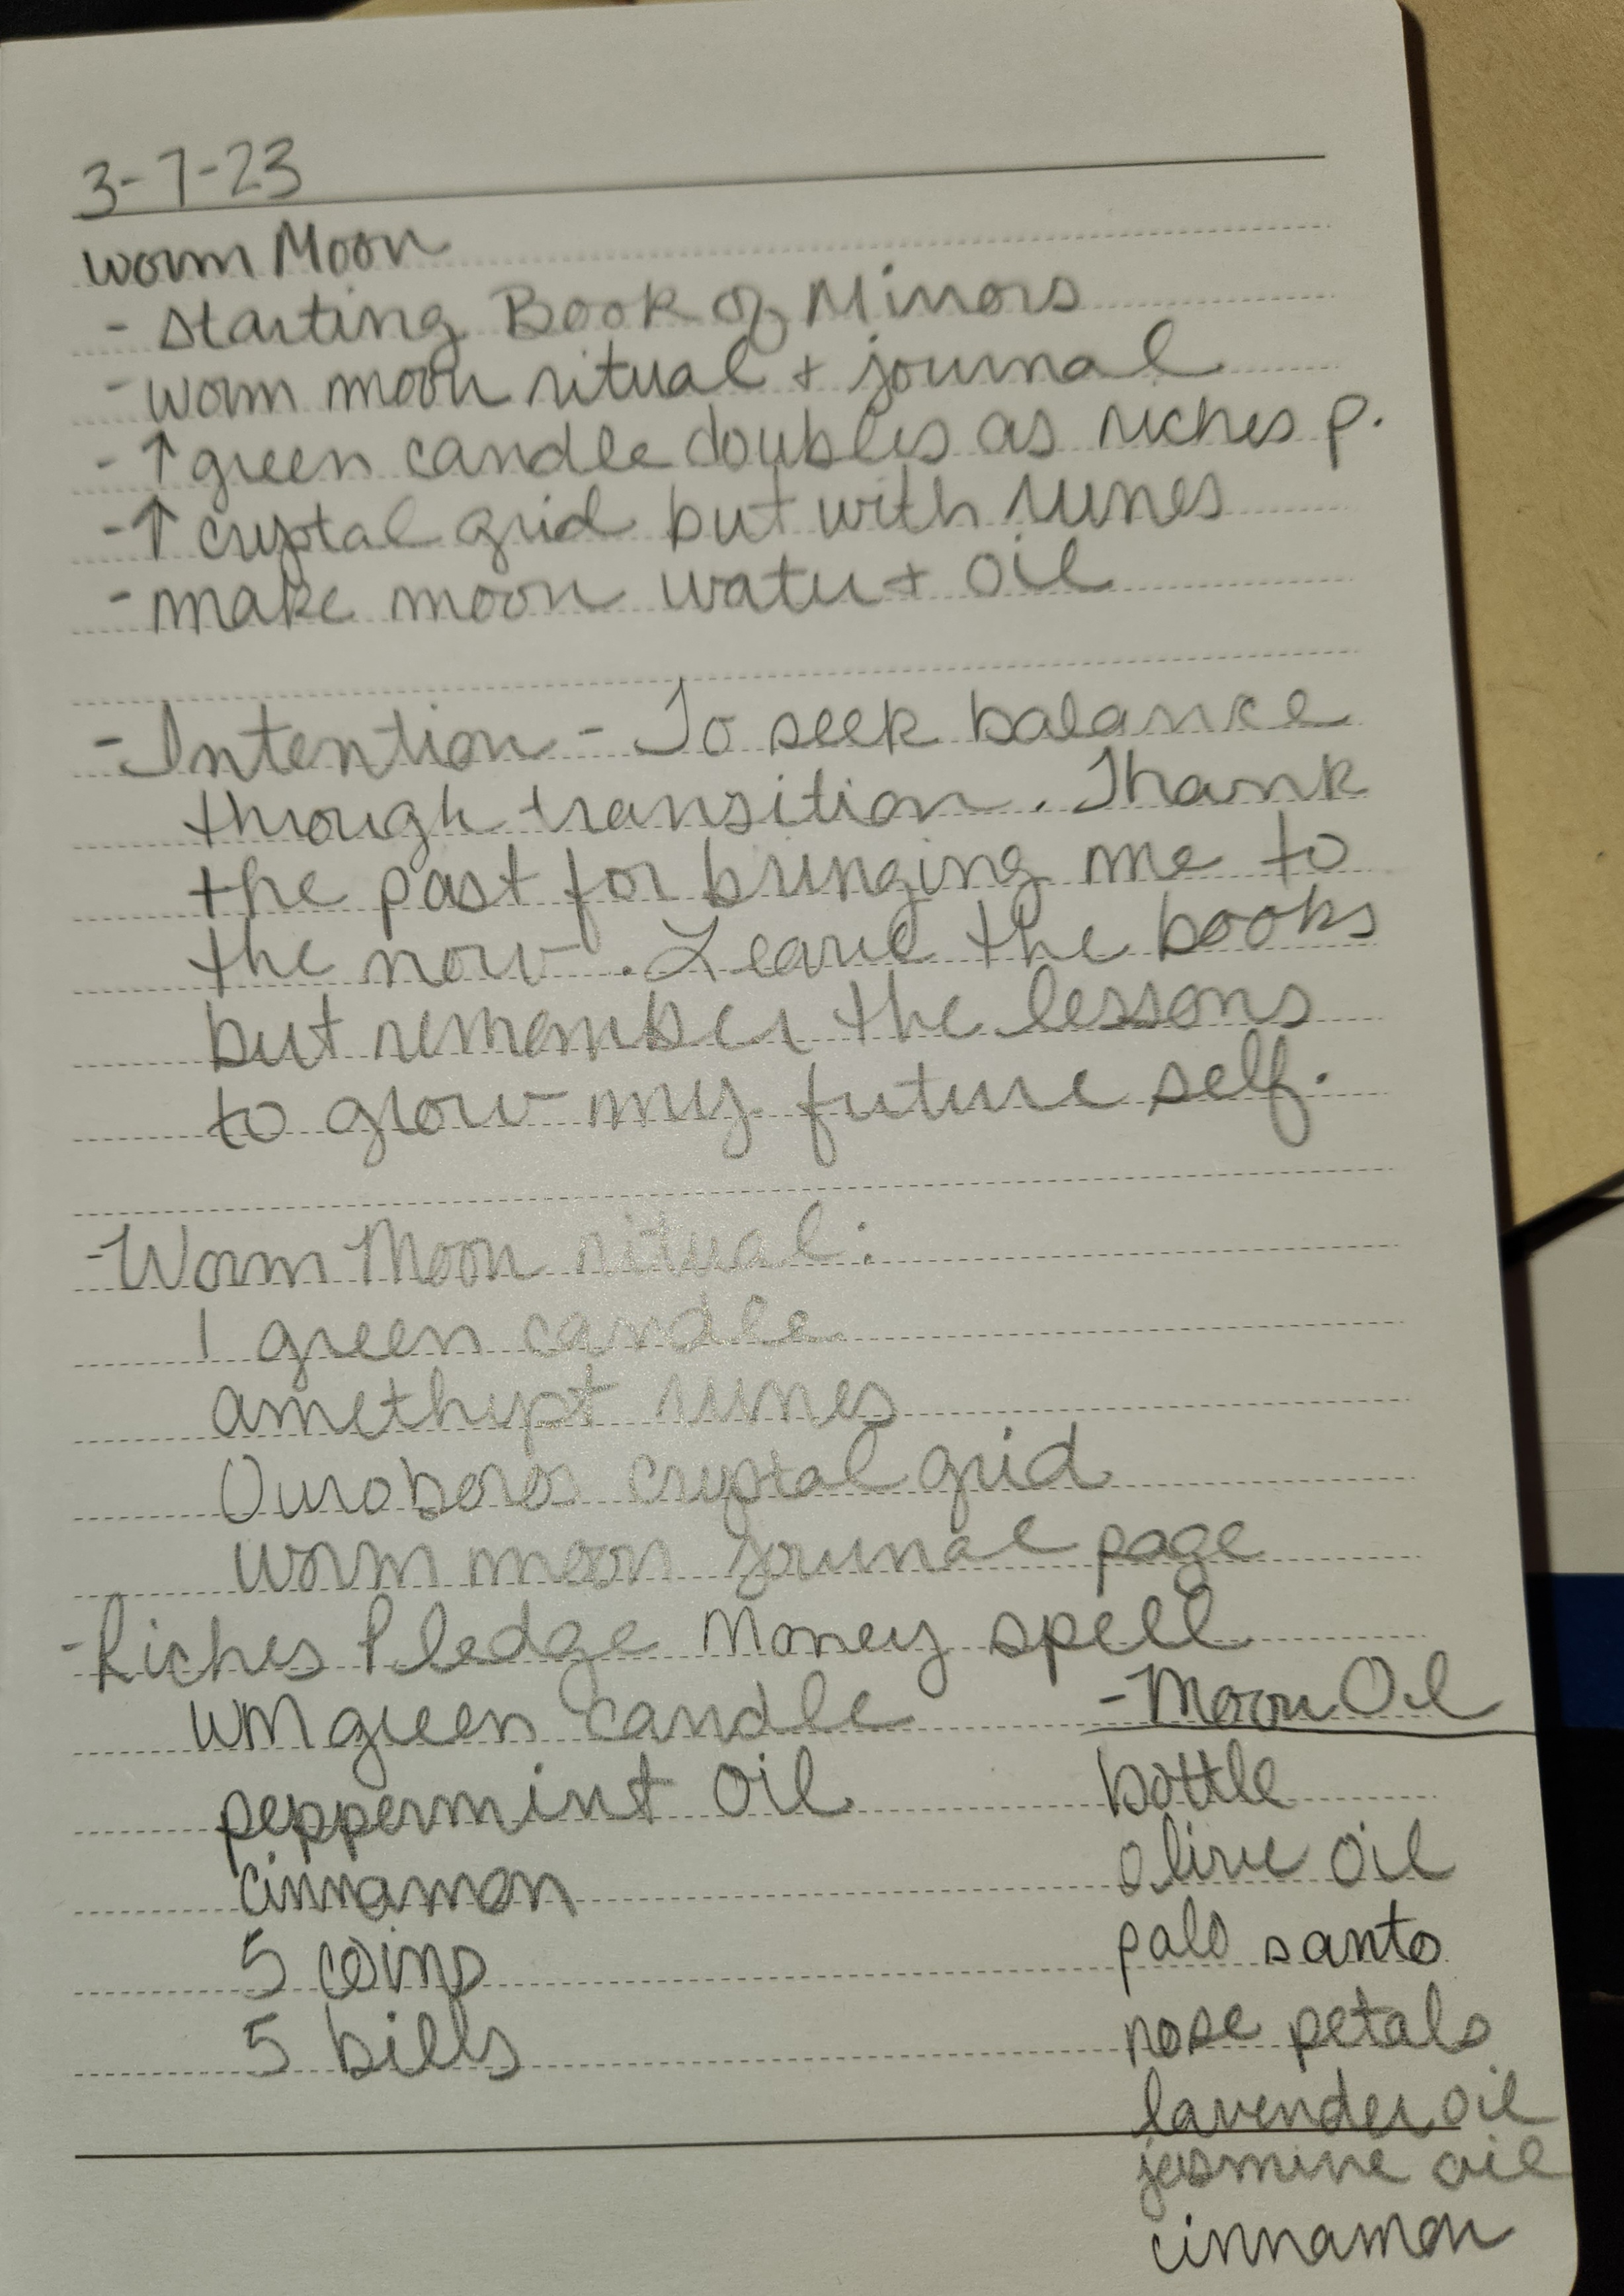 3-7-23
Worm Moon
- Starting Book of Mirrors
- worm moon ritual + journal
- ↑ green candle doubles as riches p.
- ↑ crystal grid but with runes
- make moon water + oil
- Intention - To seek balance
through transition. Thank
the past for bringing me to
the now. Leave the books
but remember the lessons
to grow my future self.
- Worm Moon ritual:
1 green candle
amethyst runes
Ouroboros crystal grid
worm moon journal page
- Riches Pledge Money spell
WM green candle
peppermint oil
cinnamon
5 coins
5 bills
- Moon Oil
bottle
olive oil
palo santo
rose petals
lavender oil
jasmine oil
cinnamon